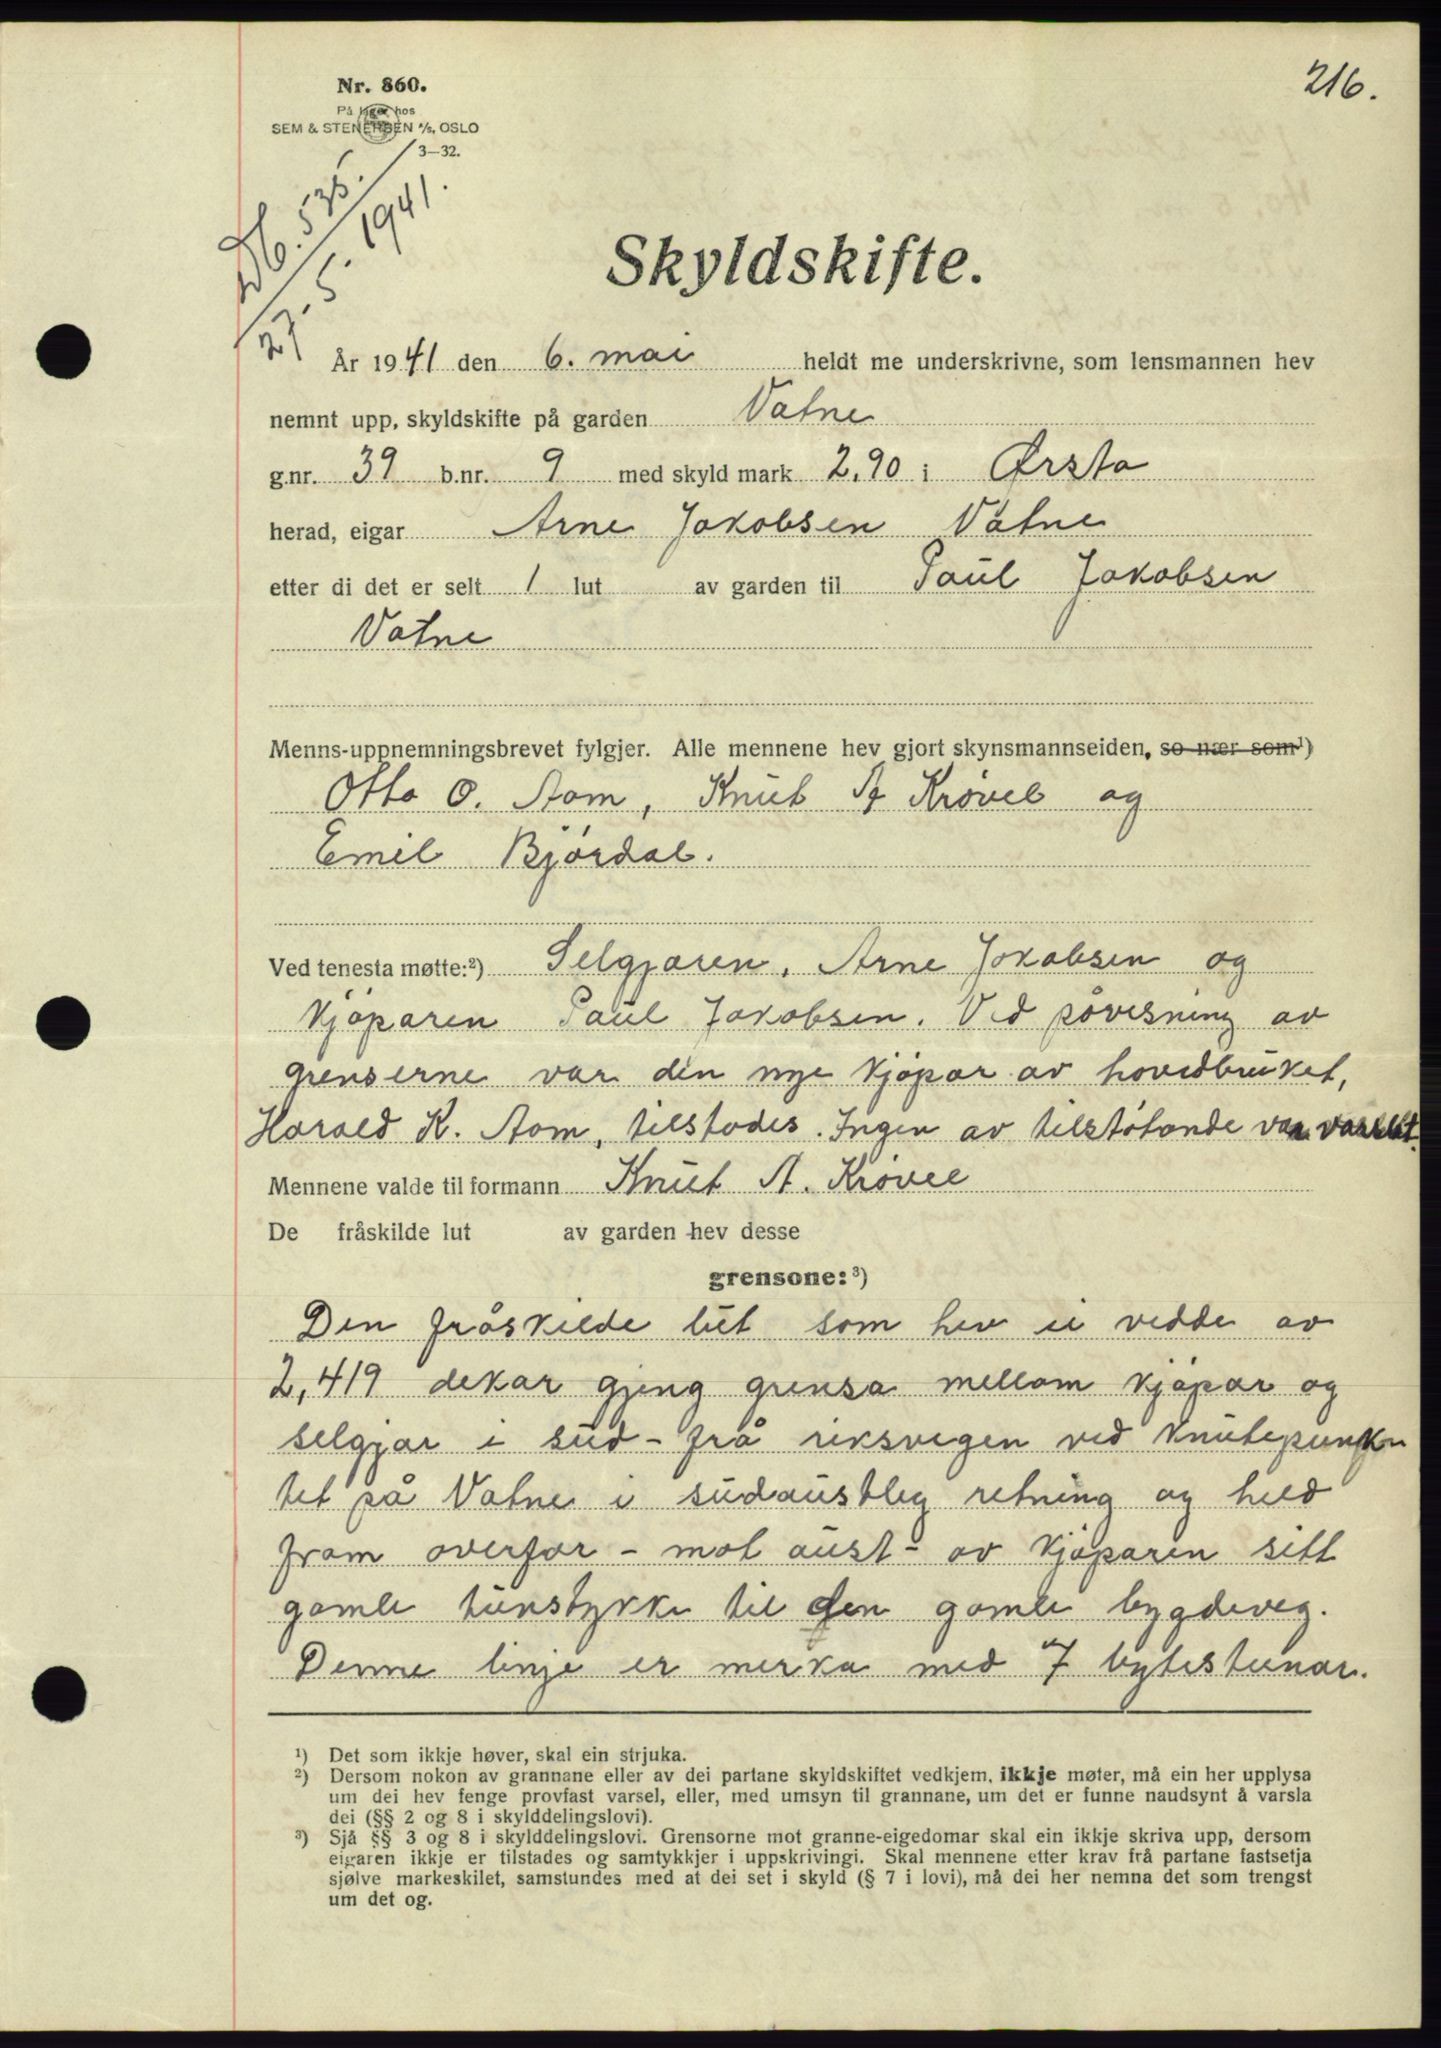 216.
Nr. 860.
På lager hos
SEM & STENERSEN A/S, OSLO
3—32.
Db. 535.
27-5. 1941.
Skyldskifte.
År 1941 den 6. mai heldt me underskrivne, som lensmannen hev
nemnt upp, skyldskifte på garden Vatne
g.nr. 39 b.nr. 9 med skyld mark 2,90 i Ørsta
herad, eigar Arne Jakobsen Vatne
etter di det er selt 1 lut av garden til Paul Jakobsen
Vatne
Menns-uppnemningsbrevet fylgjer. Alle mennene hev gjort skynsmannseiden, so nær som¹)
Otto O. Aam, Knut A Krøvel og
Emil Bjørdal.
Ved tenesta møtte:²) Selgjaren, Arne Jakobsen og
Kjøparen Paul Jakobsen. Ved påvisning av
grenserne var den nye kjøpar av hovedbruket,
Harald K. Aam, tilstades. Ingen av tilstøtande var varslat.
Mennene valde til formann Knut A. Krøvel
De fråskilde lut av garden hev desse
grensone:³)
Den fråskilde lut som hev ei vedde av
2,419 dekar gjeng grensa mellom kjøpar og
selgjar i sud - frå riksvegen ved knutepunk-
tet på Vatne i sudaustleg retning og held
fram overfor - mot aust - av kjøparen sitt
gamle tunstykke til den gamle bygdeveg.
Denne linje er merka med 7 bytesteinar.
¹) Det som ikkje høver, skal ein strjuka.
²) Dersom nokon av grannane eller av dei partane skyldskiftet vedkjem, ikkje møter, må ein her upplysa
um dei hev fenge provfast varsel, eller, med umsyn til grannane, um det er funne naudsynt å varsla
dei (§§ 2 og 8 i skylddelingslovi).
³) Sjå §§ 3 og 8 i skylddelingslovi. Grensorne mot granne-eigedomar skal ein ikkje skriva upp, dersom
eigaren ikkje er tilstades og samtykkjer i uppskrivingi. Skal mennene etter krav frå partane fastsetja
sjølve markeskilet, samstundes med at dei set i skyld (§ 7 i lovi), må dei her nemna det som trengst
um det og.